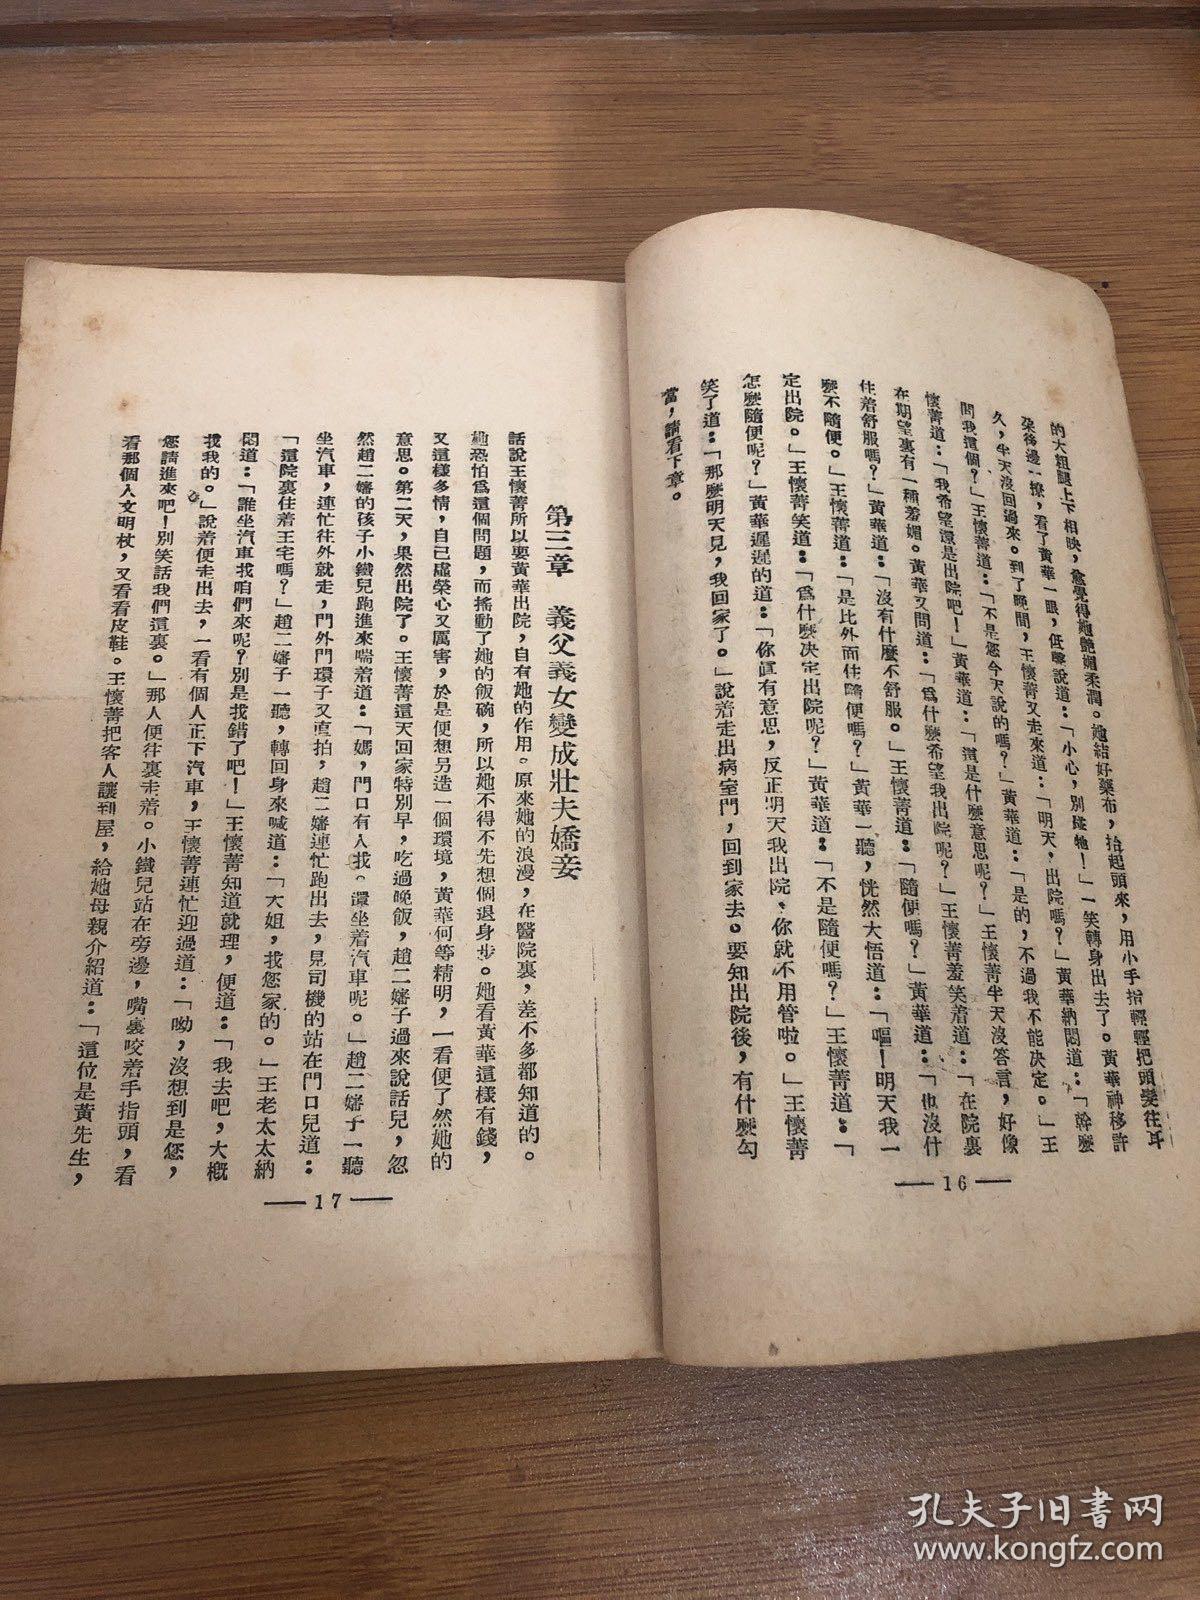 的大粗腿上下相映，愈覺得她艷媚柔潤。她結好藥布，抬起頭來，用小手指輕輕把頭髮往耳
朶後邊一撩，看了黃華一眼，低聲說道：「小心，別碰牠！」一笑轉身出去了。黃華神移許
久，半天沒回過來。到了晚間，王懷菁又走來道：「明天，出院嗎？」黃華納悶道：「幹麼
問我這個？」王懷菁道：「不是您今天說的嗎？」黃華道：「是的，不過我不能决定。」王
懷菁道：「我希望還是出院吧！」黃華道：「這是什麼意思呢？」王懷菁半天沒答言，好像
在期望裏有一種羞媚。黃華又問道：「爲什麼希望我出院呢？」王懷菁羞笑着道：「在院裏
住着舒服嗎？」黃華道：「沒有什麼不舒服。」王懷菁道：「隨便嗎？」黃華道：「也沒什
麼不隨便。」王懷菁道：「是比外面住隨便嗎？」黃華一聽，恍然大悟道：「嘔！明天我一
定出院。」王懷菁笑道：「爲什麼决定出院呢？」黃華道：「不是隨便嗎？」王懷菁道：「
怎麼隨便呢？」黃華遲遲的道：「你眞有意思，反正明天我出院，你就不用管啦。」王懷菁
笑了道：「那麼明天見，我回家了。」說着走出病室門，回到家去。要知出院後，有什麼勾
當，請看下章。
— 16 —
第三章 義父義女變成壯夫嬌妾
話說王懷菁所以要黃華出院，自有她的作用。原來她的浪漫，在醫院裏，差不多都知道的。
她恐怕爲這個問題，而搖動了她的飯碗，所以她不得不先想個退身步。她看黃華這樣有錢，
又這樣多情，自己虛榮心又厲害，於是便想另造一個環境，黃華何等精明，一看便了然她的
意思。第二天，果然出院了。王懷菁這天回家特別早，吃過晚飯，趙二嬸子過來說話兒，忽
然趙二嬸的孩子小鐵兒跑進來喘着道：「媽，門口有人找。還坐着汽車呢。」趙二嬸子一聽
坐汽車，連忙往外就走，門外門環子又直拍，趙二嬸連忙跑出去，見司機的站在門口兒道：
「這院裏住着王宅嗎？」趙二嬸子一聽，轉回身來喊道：「大姐，找您家的。」王老太太納
悶道：「誰坐汽車找咱們來呢？別是找錯了吧！」王懷菁知道就理，便道：「我去吧，大概
找我的。」說着便走出去，一看有個人正下汽車，王懷菁連忙迎過道：「呦，沒想到是您，
您請進來吧！別笑話我們這裏。」那人便往裏走着。小鐵兒站在旁邊，嘴裏咬着手指頭，看
看那個人文明杖，又看看皮鞋。王懷菁把客人讓到屋，給她母親介紹道：「這位是黃先生，
— 17 —
孔夫子旧书网
www.kongfz.com